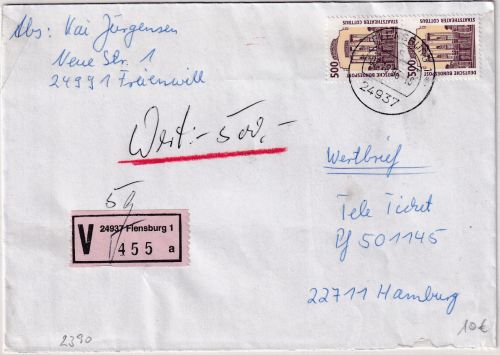 Abs: Kai Jürgensen
Neue Str. 1
24991 Freienwill
500
DEUTSCHE BUNDESPOST
STAATSTHEATER COTTBUS
500
DEUTSCHE BUNDESPOST
STAATSTHEATER COTTBUS
24937
Wert:- 500,-
Wertbrief
5g
V
24937 Flensburg 1
455 a
Tele Ticket
Pf 501145
22711 Hamburg
2390
10€